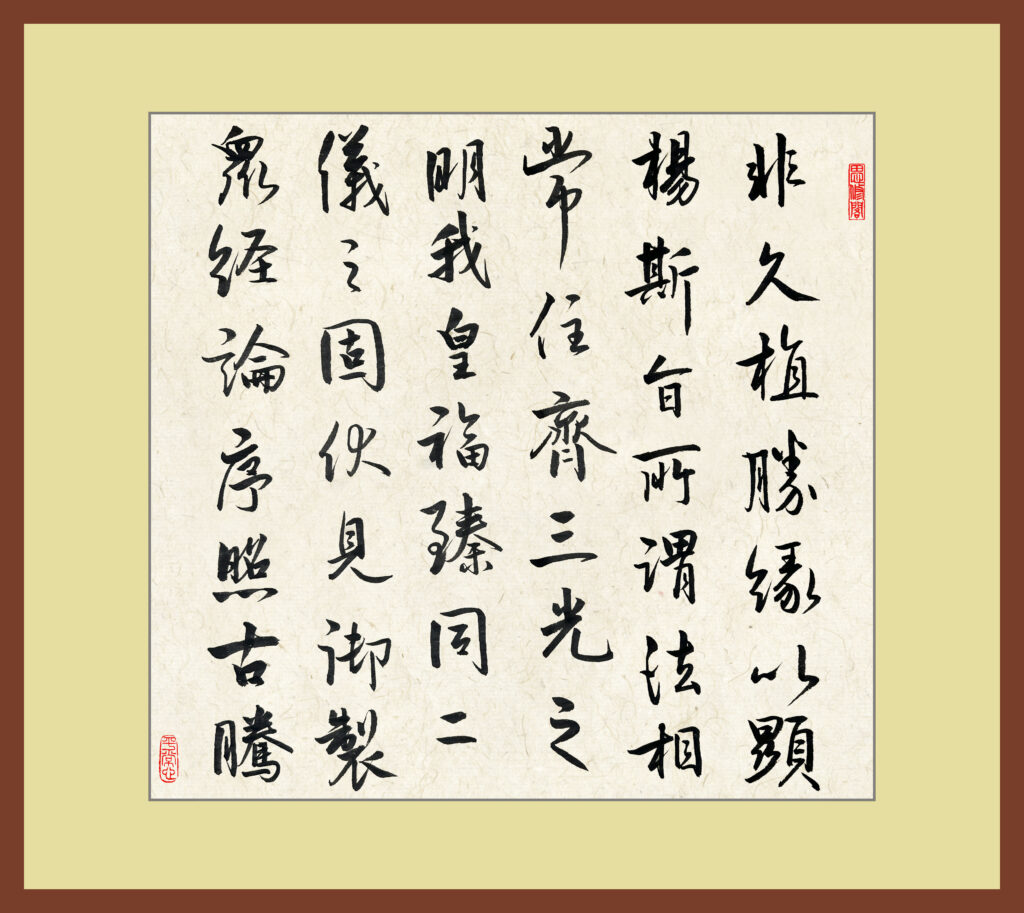 思修閣
非久植勝緣以顯
楊斯旨所謂法相
常住齊三光之
明我皇福臻同二
儀之固伏見御製
眾経論序照古騰
平常心